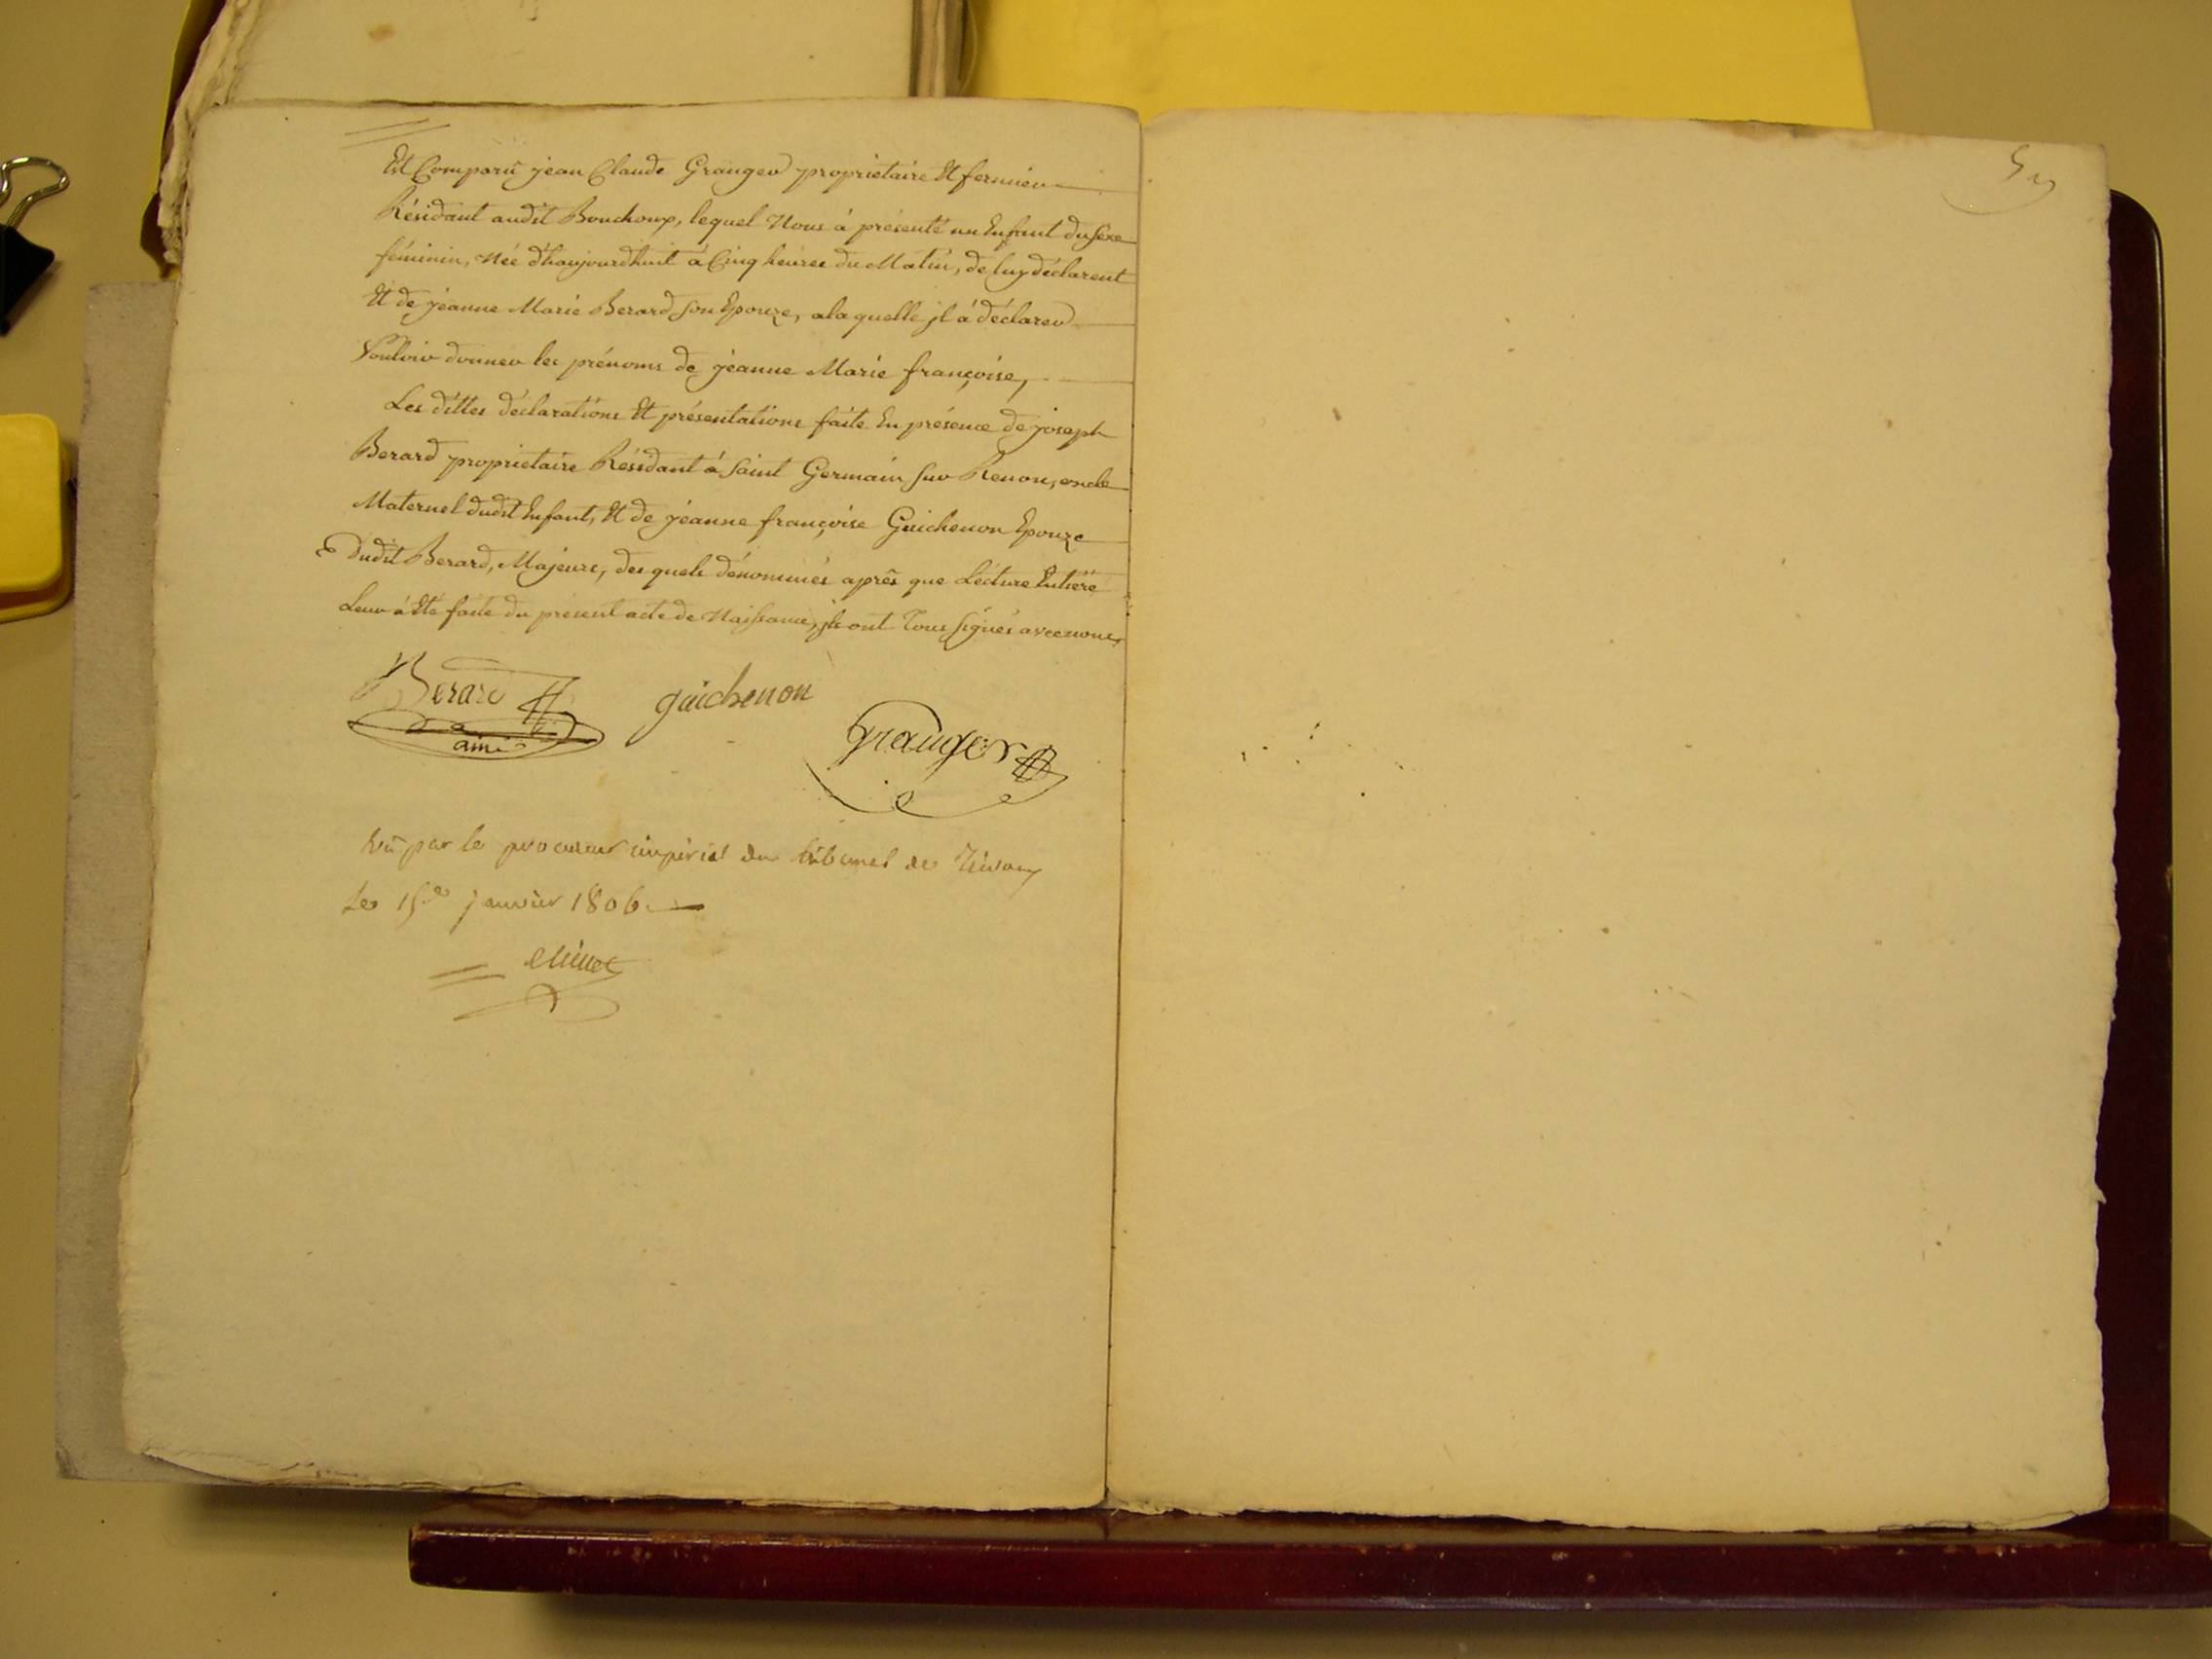 Est Comparû jean Claude Granger proprietaire Et fermier
Résidant audit Bouchoux, lequel Nous à présenté un Enfant du sexe
féminin, Née d'haujourdhuit à Cinq heures du Matin, de luy déclarent
Et de jeanne Marie Berard son Epouze, a la quelle jl à déclarer
Vouloir donner les prénoms de jeanne Marie françoise,
Les dittes déclarations Et présentations faite En présence de joseph
Berard proprietaire Résidant à Saint Germain sur Renon, oncle
Maternel dudit Enfant, Et de jeanne françoise Guichenon Epouze
dudit Berard, Majeurs, des quels dénommés après que Lécture Entière
Leur à Eté faite du présent acte de Naissance, jls ont Tous signés avec nous,
Berard guichenon
ainé
Granger
Vû par le procureur impérial du tribunal de Trévoux
Le 15.e janvier 1806.